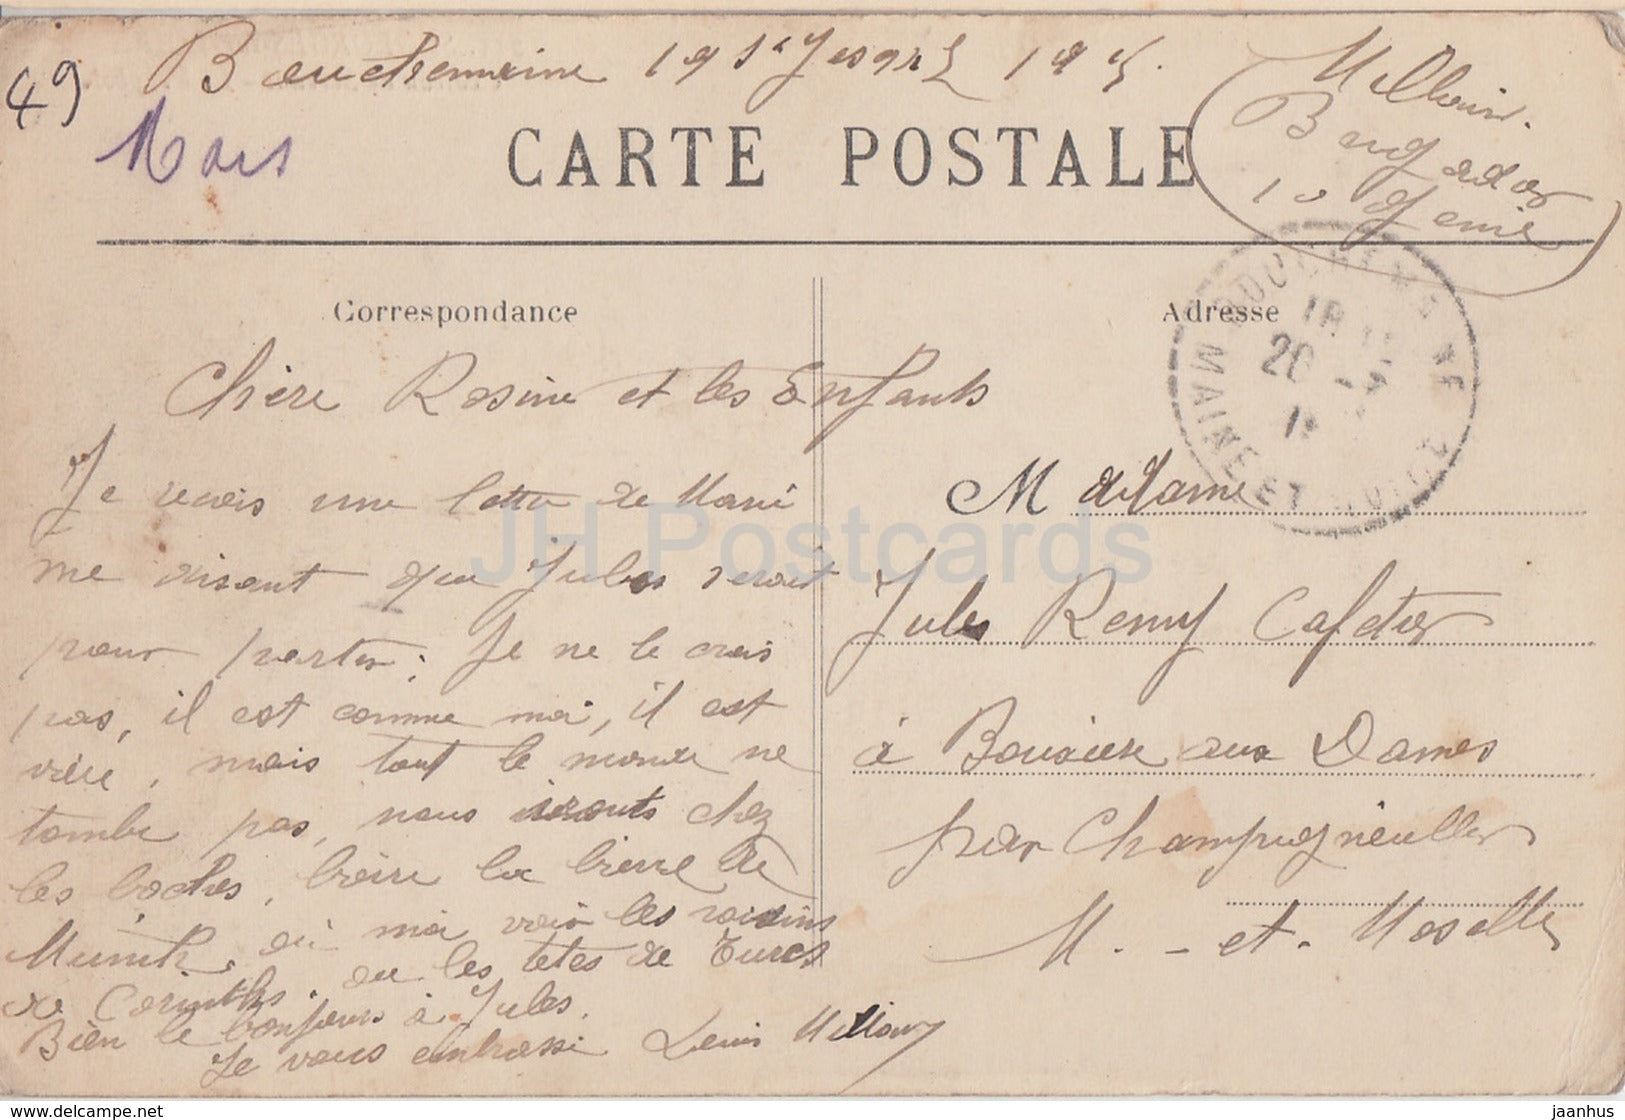 49
Bouchemaine 19 1915.
Mars
Brigadier
10 Génie
CARTE POSTALE
Correspondance
Adresse
BOUCHEMAINE
MAINE ET LOIRE
Chère Rosine et les Enfants
Je reçois une lettre de Marie
me disant que Jules serait
pour partir. Je ne le crois
pas, il est comme moi, il est
vieux, mais tout le monde ne
tombe pas, nous irons chez
les boches, boire la bierre de
Munich, ou moi voir les raisins
de Corinthe. ou les têtes de Turcs
Bien le bonjour à Jules.
Je vous embrasse Louis
Madame
Jules Remy Cafetier
à Bouxière aux Dames
par Champigneulles
M. - et. Moselle
JH Postcards
https://www.jaanhus.com
jaanhus.com